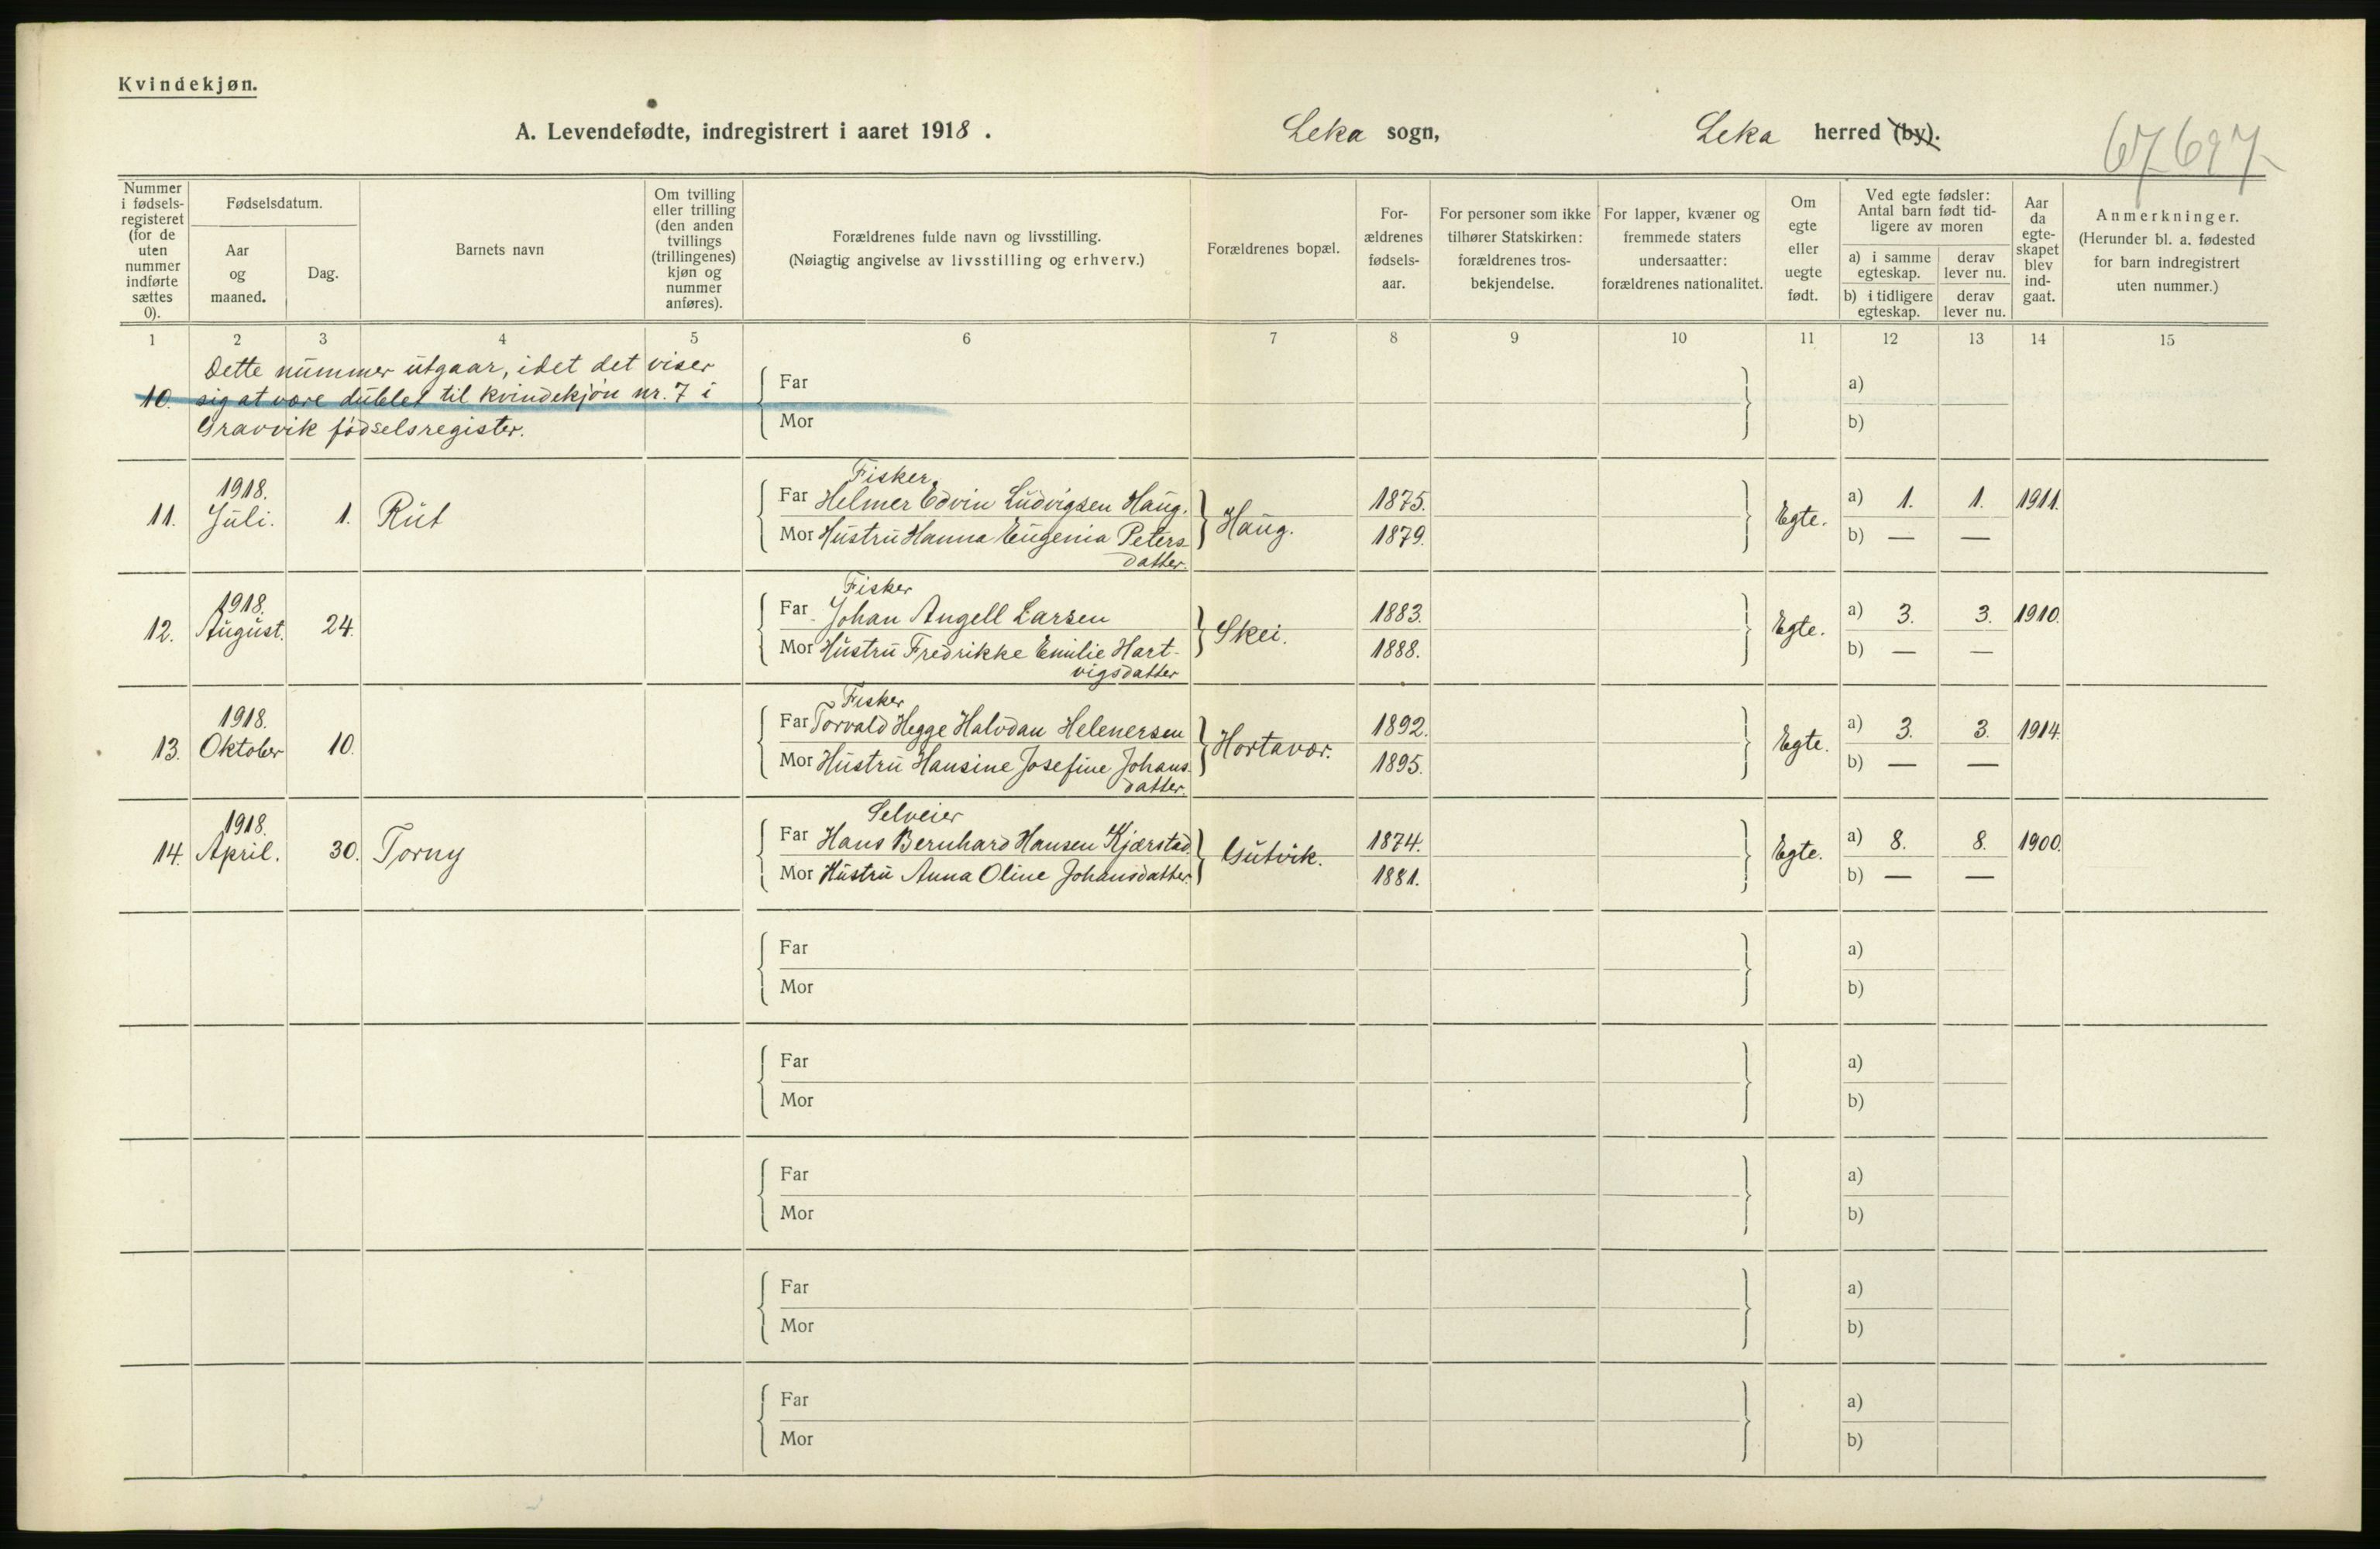 Kvindekjøn.
A. Levendefødte, indregistrert i aaret 1918.
Leka sogn,
Leka herred (by).
67697
Nummer i fødsels-registeret (for de uten nummer indførte sættes 0).
Fødselsdatum.
Aar og maaned.
Dag.
Barnets navn
Om tvilling eller trilling (den anden tvillings (trillingenes) kjøn og nummer anføres).
Forældrenes fulde navn og livsstilling.
(Nøiagtig angivelse av livsstilling og erhverv.)
Forældrenes bopæl.
For-ældrenes fødsels-aar.
For personer som ikke tilhører Statskirken: forældrenes tros-bekjendelse.
For lapper, kvæner og fremmede staters undersaatter: forældrenes nationalitet.
Om egte eller uegte født.
Ved egte fødsler: Antal barn født tid-ligere av moren
a) i samme egteskap.
derav lever nu.
b) i tidligere egteskap.
derav lever nu.
Aar da egte-skapet blev ind-gaat.
Anmerkninger.
(Herunder bl. a. fødested for barn indregistrert uten nummer.)
1 2 3 4 5 6 7 8 9 10 11 12 13 14 15
Dette nummer utgaar, idet det viser
10. sig at være dublet til kvindekjøn nr. 7 i
Gravvik fødselsregister.
Far
Mor
a)
b)
Fisker
11. 1918. Juli. 1. Rut Far Helmer Edvin Ludvigsen Haug. Haug. 1875. Egte. a) 1. 1. 1911.
Mor Hustru Hanna Eugenia Peters- 1879. b) — —
datter.
Fisker
12. 1918. August. 24. Far Johan Angell Larsen Skei. 1883. Egte. a) 3. 3. 1910.
Mor Hustru Fredrikke Emilie Hart- 1888. b) — —
vigsdatter
Fisker
13. 1918. Oktober 10. Far Torvald Hegge Halvdan Helenersen Hortavær. 1892. Egte. a) 3. 3. 1914.
Mor Hustru Hansine Josefine Johans- 1895. b) — —
datter.
Selveier
14. 1918. April. 30. Torny Far Hans Bernhard Hansen Kjærstad. Gutvik. 1874. Egte. a) 8. 8. 1900.
Mor Hustru Anna Oline Johansdatter. 1881. b) — —
Far a)
Mor b)
Far a)
Mor b)
Far a)
Mor b)
Far a)
Mor b)
Far a)
Mor b)